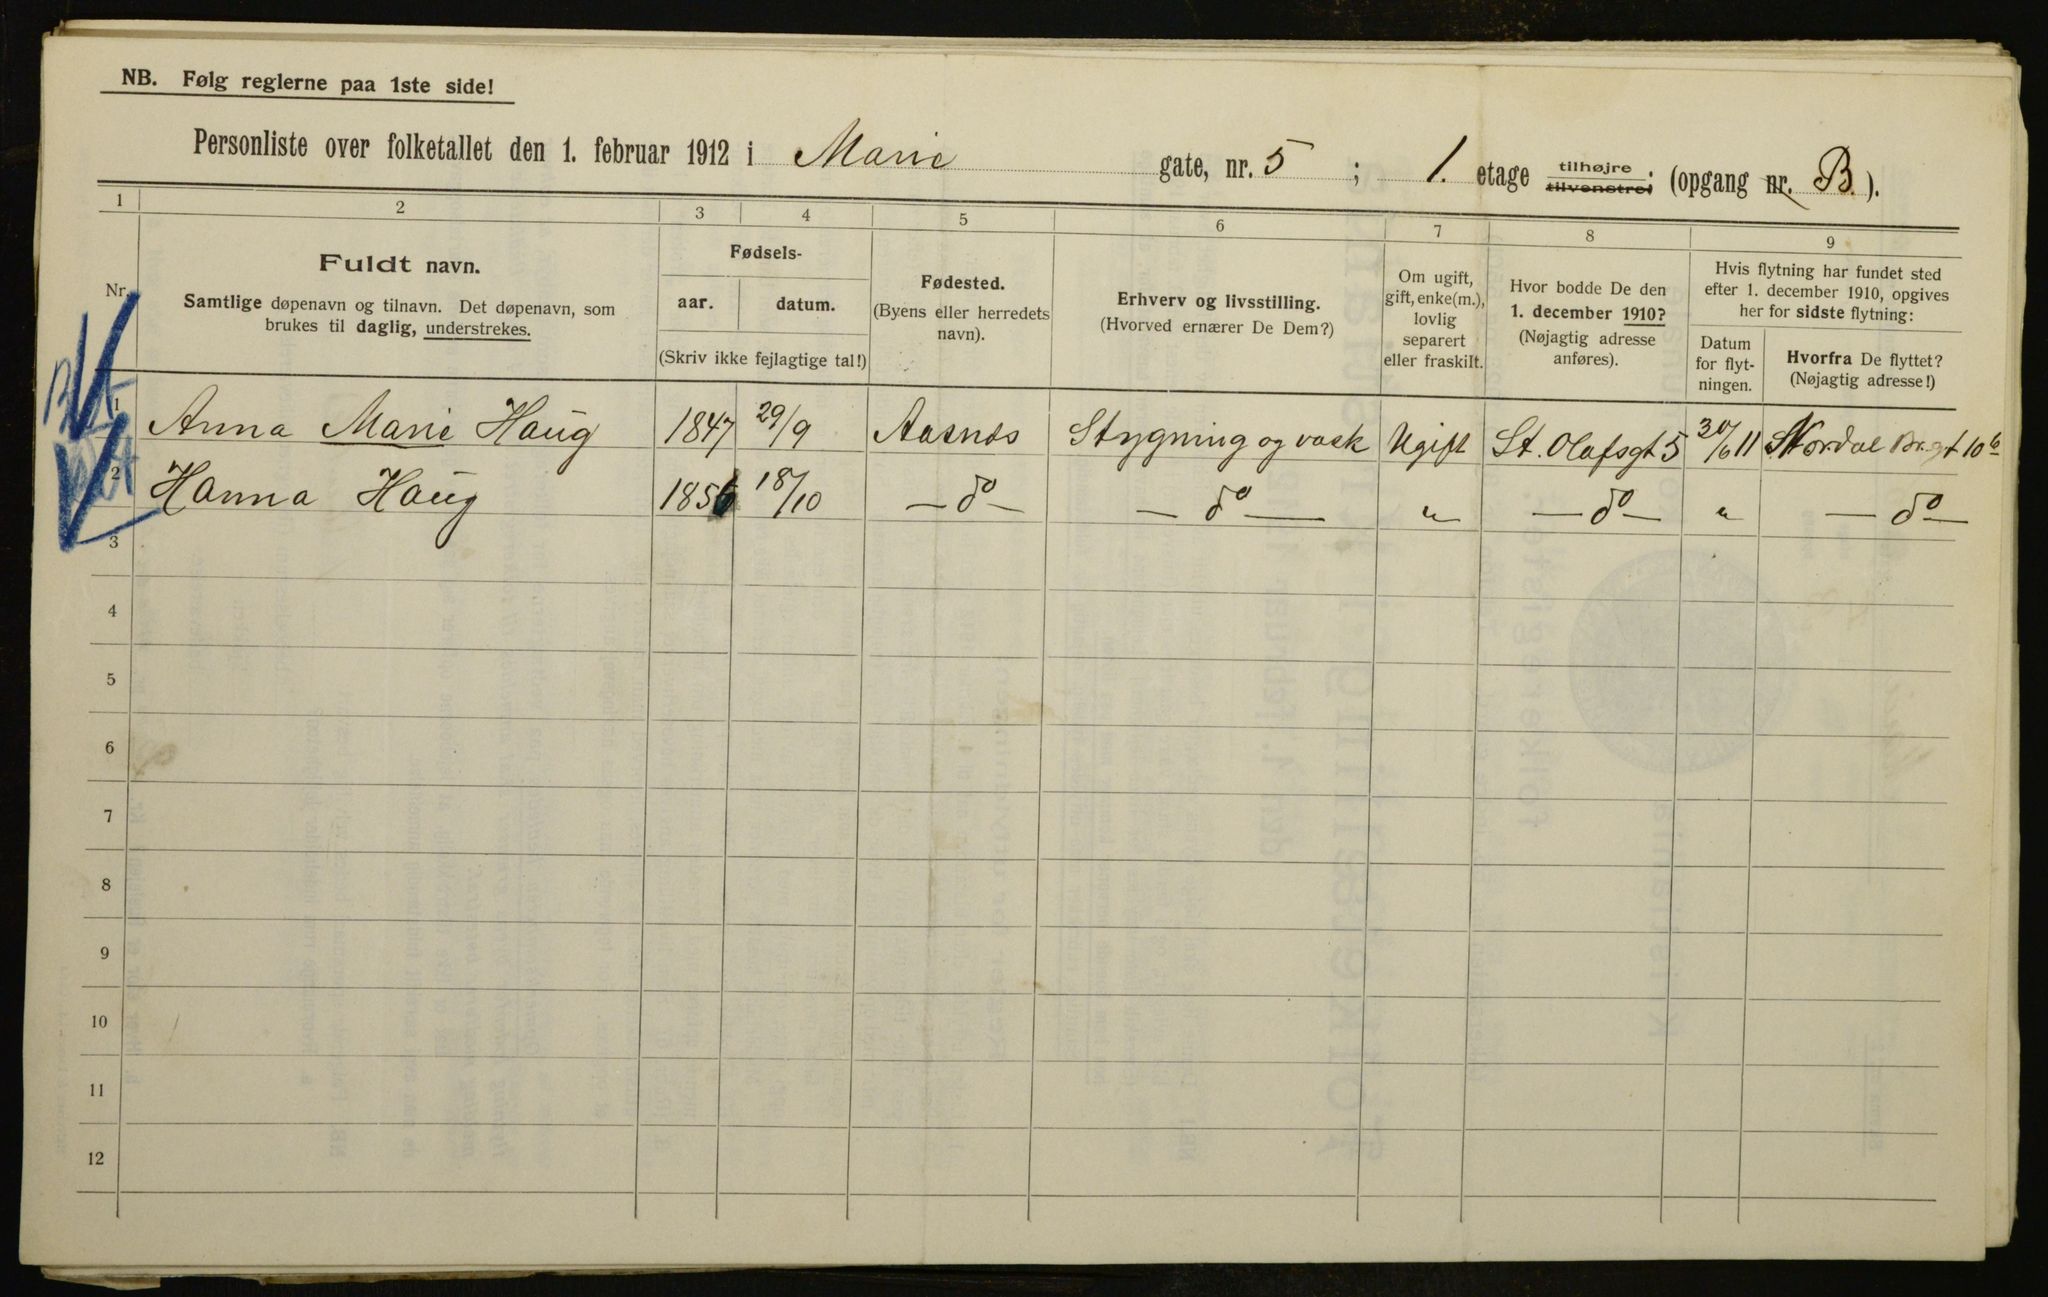 NB. Følg reglerne paa 1ste side!
Personliste over folketallet den 1. februar 1912 i Marie gate, nr. 5 ; 1. etage tilhøjre. tilvenstre. (opgang nr. B.).
1 2 3 4 5 6 7 8 9
Nr.
Fuldt navn.
Samtlige døpenavn og tilnavn. Det døpenavn, som
brukes til daglig, understrekes.
Fødsels-
aar. datum.
(Skriv ikke fejlagtige tal!)
Fødested.
(Byens eller herredets
navn).
Erhverv og livsstilling.
(Hvorved ernærer De Dem?)
Om ugift,
gift, enke(m.),
lovlig
separert
eller fraskilt.
Hvor bodde De den
1. december 1910?
(Nøjagtig adresse
anføres).
Hvis flytning har fundet sted
efter 1. december 1910, opgives
her for sidste flytning:
Datum
for flyt-
ningen.
Hvorfra De flyttet?
(Nøjagtig adresse!)
1 Anna Marie Haug 1847 29/9 Aasnes Strygning og vask Ugift St. Olafsgt 5 30/6 11 Nordal Br.gt 10 b
2 Hanna Haug 1856 18/10 — do — — do — " — do — " — do —
3
4
5
6
7
8
9
10
11
12